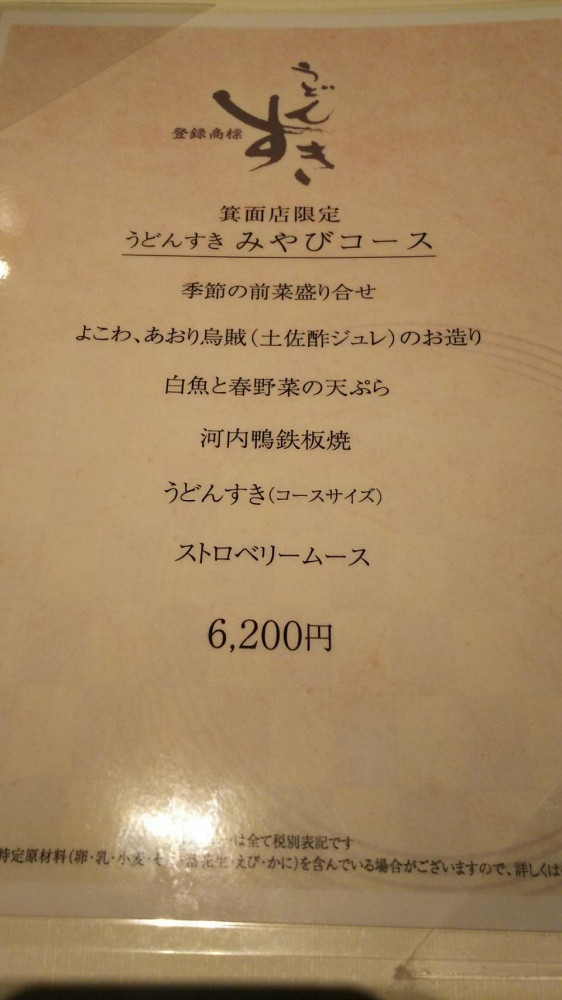 うどん
すき
登録商標
箕面店限定
うどんすき みやびコース
季節の前菜盛り合せ
よこわ、あおり烏賊(土佐酢ジュレ)のお造り
白魚と春野菜の天ぷら
河内鴨鉄板焼
うどんすき(コースサイズ)
ストロベリームース
6,200円
は全て税別表記です
特定原材料(卵・乳・小麦・そ・落花生・えび・かに)を含んでいる場合がございますので、詳しくは